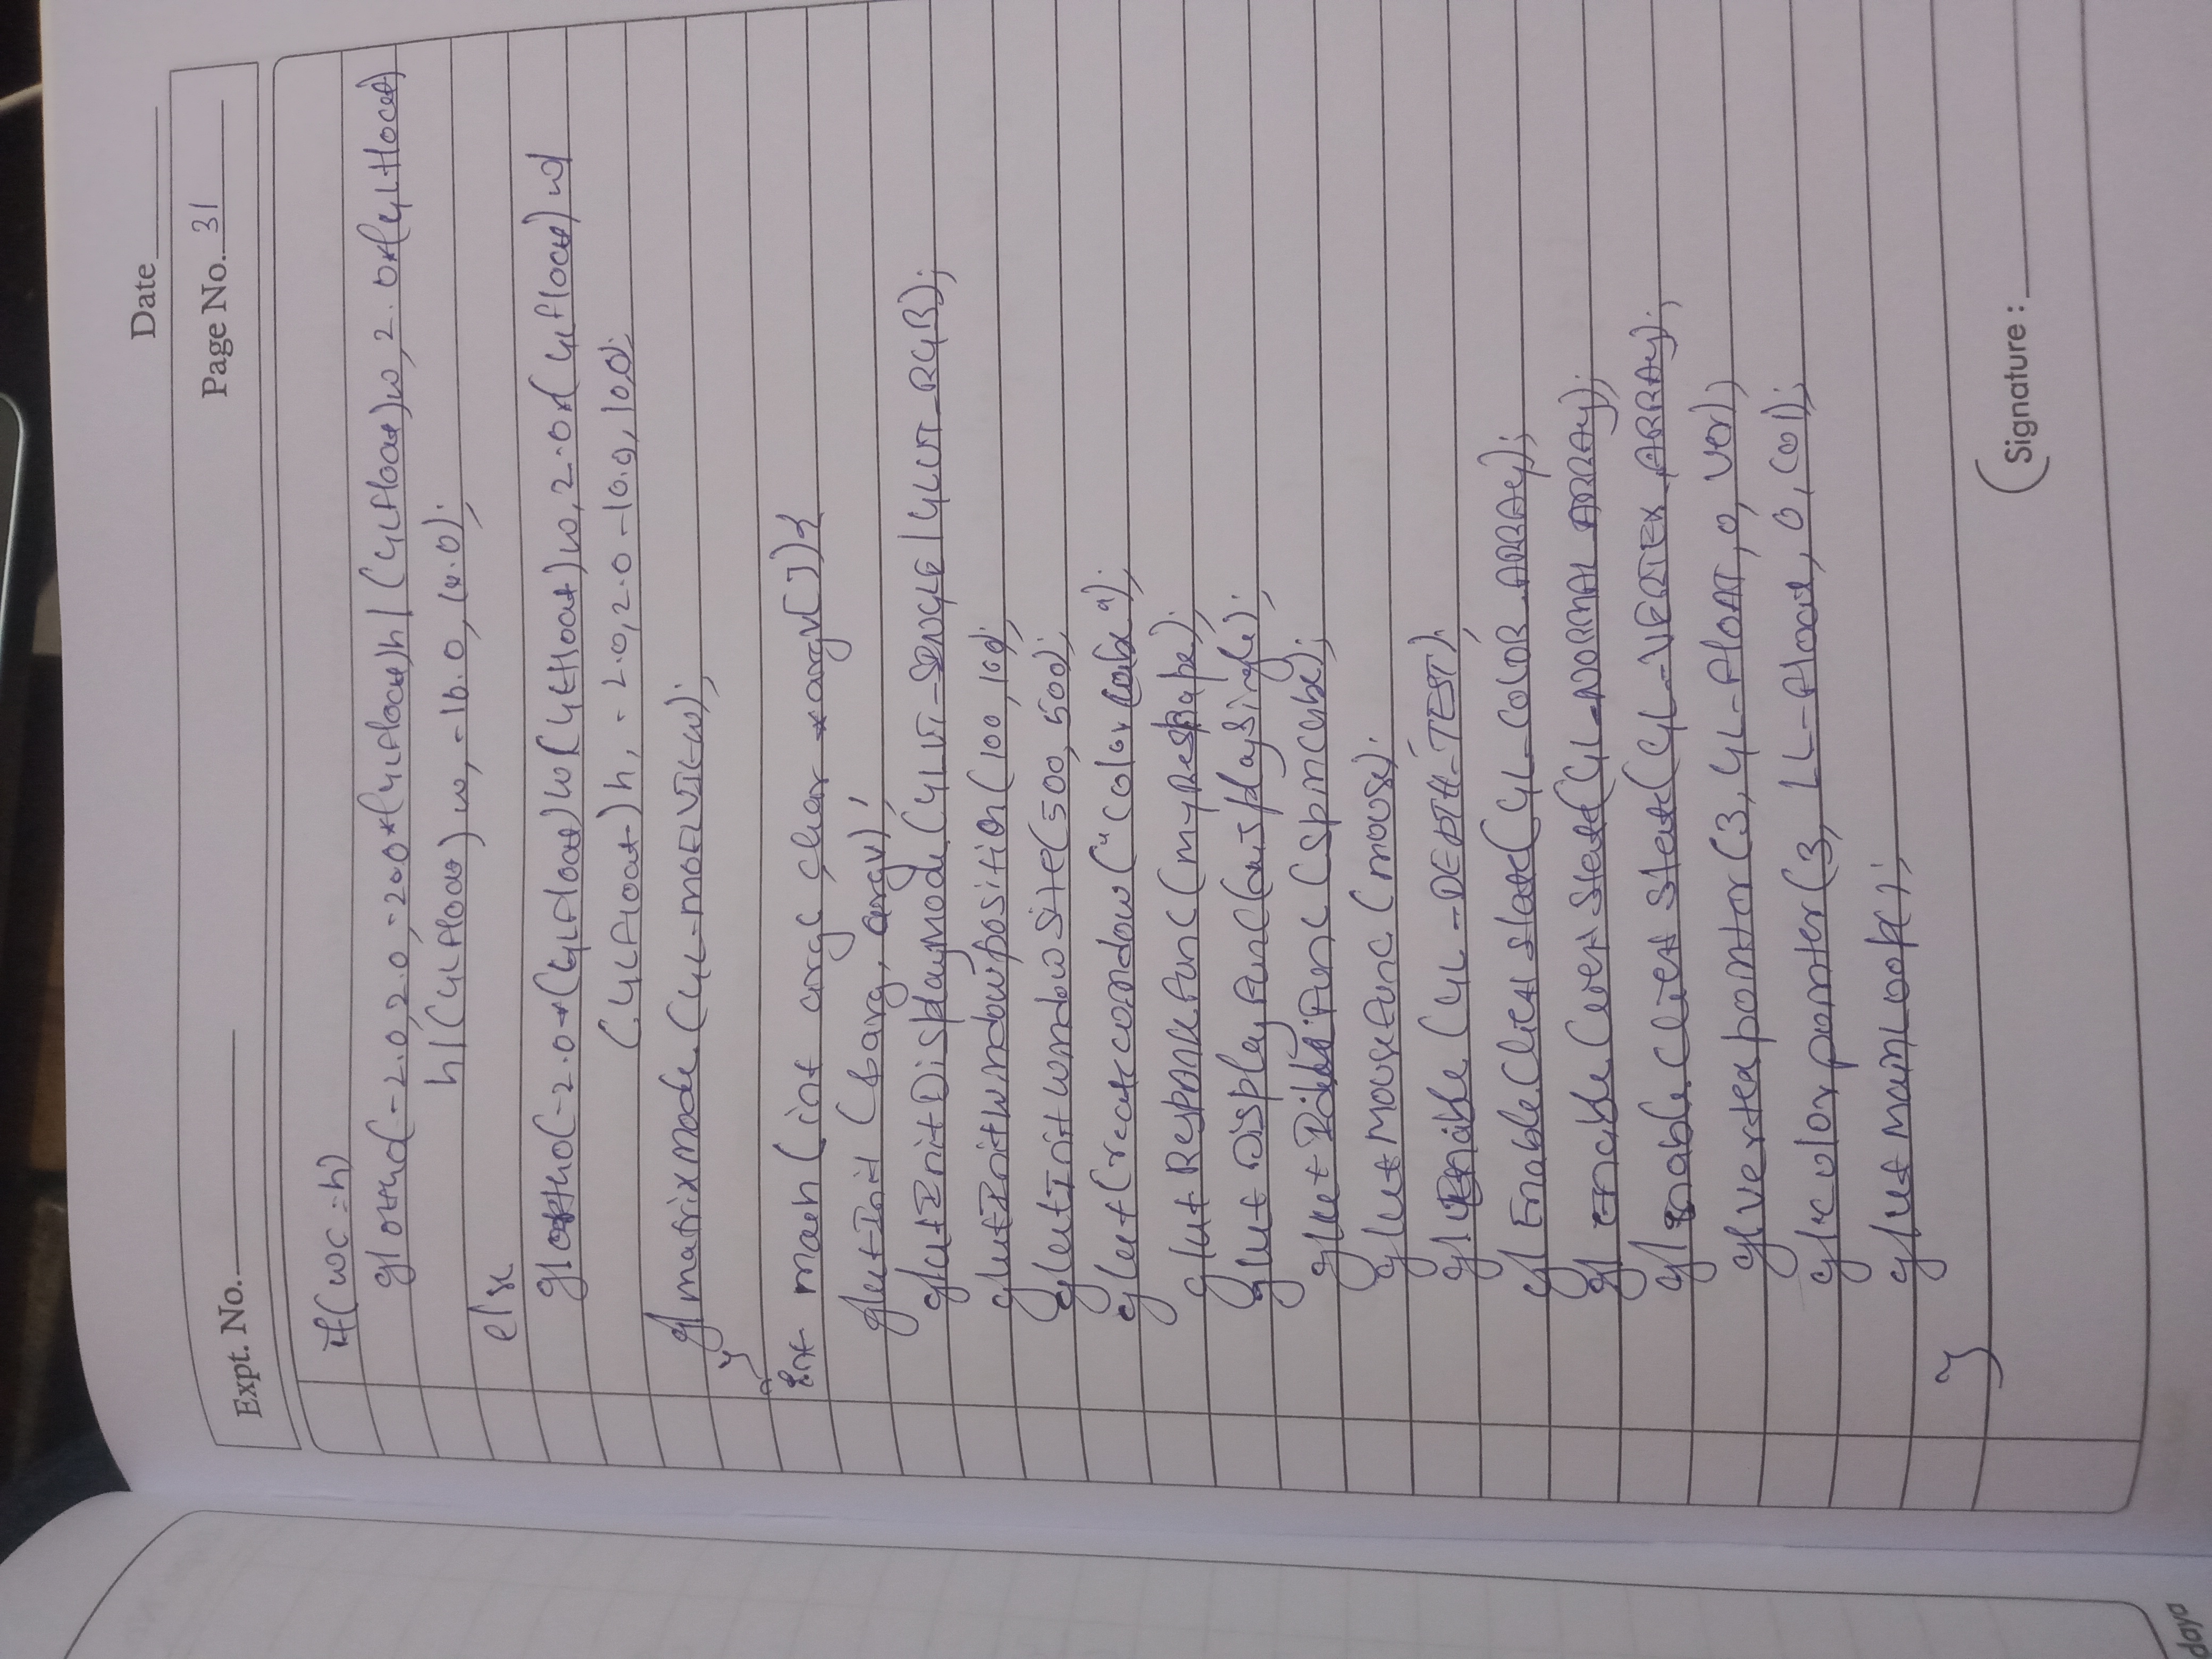 Date
Expt. No. Page No. 31
if(wc=h)
glortho(-2.0,2.0,-2.0*(GLfloat)h/(GLfloat)w,2.0*(GLfloat)
h/(GLfloat)w,-10.0,10.0);
else
glortho(-2.0*(GLfloat)w/(GLfloat)w,2.0*(GLfloat)w/
(GLfloat)h,-2.0,2.0-10.0,10.0);
glmatrixmode(GL-MODELVIEW);
}
int main(int argc,char *argv[]){
glutInit(&arg,argv);
glutInitDisplaymode(GLUT-SINGLE|GLUT-RGB);
glutInitwindowposition(100,100);
glutInitwindowsize(500,500);
glutCreatewindow("color cube");
glutReshapefunc(myReshape);
glutDisplayfunc(displaysingle);
glutIdleFunc(spincube);
glutMousefunc(mouse);
glEnable(GL-DEPTH-TEST);
glEnableClientstate(GL-COLOR-ARRAY);
glenableClientstate(GL-NORMAL ARRAY);
glenableClientstate(GL-VERTEX-ARRAY);
glvertexpointer(3,GL-FLOAT,0,ver);
glcolorpointer(3,GL-float,0,col);
glutmainloop();
}
Signature :